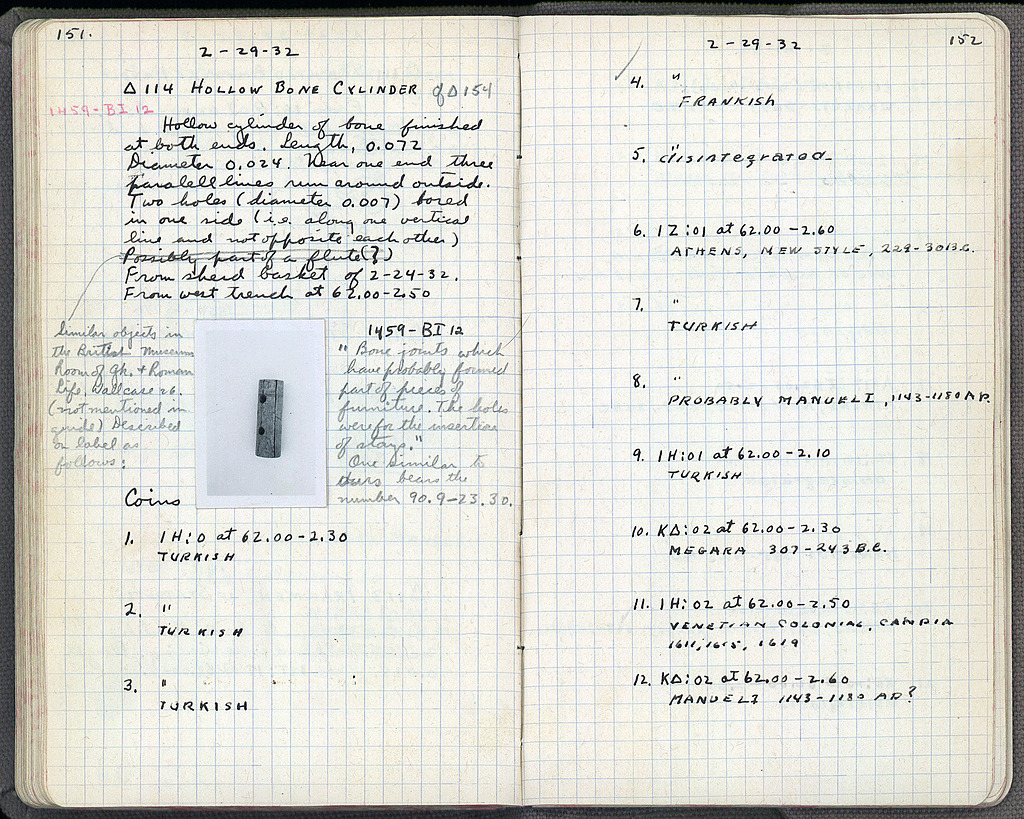 151.
2-29-32
Δ 114 HOLLOW BONE CYLINDER cf Δ 154
1459-BI 12
Hollow cylinder of bone finished
at both ends. Length, 0.072
Diameter 0.024. Near one end three
paralell lines run around outside.
Two holes (diameter 0.007) bored
in one side (i.e. along one vertical
line and not opposite each other)
Possibly part of a flute (?)
From sherd basket of 2-24-32.
From west trench at 62.00-2.50
Similar objects in
the British Museum
Room of Gk. + Roman
Life, Wallcase 26.
(not mentioned in
guide) Described
on label as
follows:
1459-BI 12
"Bone joints which
have probably formed
part of pieces of
furniture. The holes
were for the insertion
of stays."
One similar to
ours bears the
number 90.9-23.30.
Coins
1. IH:0 at 62.00-2.30
TURKISH
2. "
TURKISH
3. "
TURKISH
2-29-32
152
4. "
FRANKISH
5. "
disintegrated
6. IZ:01 at 62.00-2.60
ATHENS, NEW STYLE, 229-30 B.C.
7. "
TURKISH
8. "
PROBABLY MANUEL I, 1143-1180 AD.
9. IH:01 at 62.00-2.10
TURKISH
10. KΔ:02 at 62.00-2.30
MEGARA 307-243 B.C.
11. IH:02 at 62.00-2.50
VENETIAN COLONIAL, CANDIA
1611, 1615, 1619
12. KΔ:02 at 62.00-2.60
MANUEL I 1143-1180 AD?